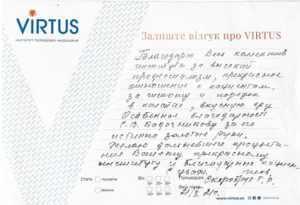 VIRTUS
ІНСТИТУТ ПЕРЕДОВОЇ МЕДИЦИНИ
Залиште відгук про VIRTUS
Благодарю Весь коллектив
института за высокий
профессионализм, прекрасное
отношение к пациентам,
за чистоту и порядок
в палатах, вкусную еду
Особенная благодарность
за его
золотые руки.
Желаю дальнейшего процветания
Вашему прекрасному
институту и благодарных
Стать
чоловіча
жіноча
Вік
www.virtus.ua